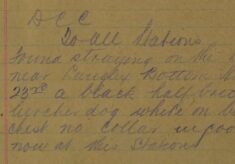 D C C
To all Stations
Found straying on the
near Bottom
23rd a black half bred
lurcher dog white on
chest no collar in poor
now at this Station